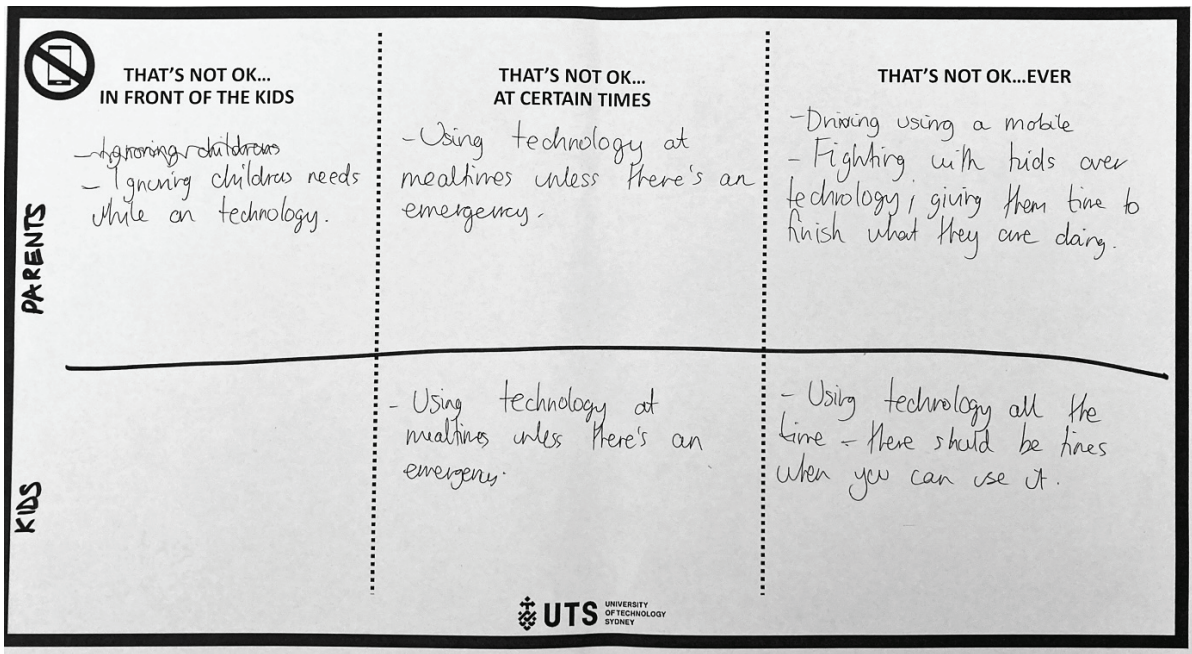 THAT'S NOT OK...
IN FRONT OF THE KIDS
THAT'S NOT OK...
AT CERTAIN TIMES
THAT'S NOT OK...EVER
PARENTS
- Ignoring childrens
- Ignoring childrens needs
while on technology.
- Using technology at
mealtimes unless there's an
emergency.
- Driving using a mobile
- Fighting with kids over
technology, giving them time to
finish what they are doing.
KIDS
- Using technology at
mealtimes unless there's an
emergency.
- Using technology all the
time - there should be times
when you can use it.
UTS
UNIVERSITY
OF TECHNOLOGY
SYDNEY